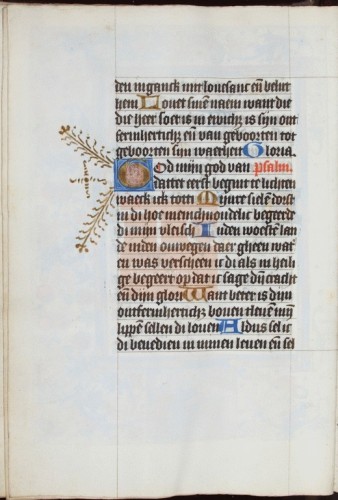 den inganck mit louesanc eñ beliit
hem Louet sinē naem want die
die heer soet is in ewichz is sijn ont
fermherticħz eñ van geboorten tot
geboorten sijn waerheit Gloria.
God mijn god van psalm.
datter eerst begint te lichten
waeck ick tot ti Mijnre sielē dorst
in di hoe menichuoudelic begeerde
di mijn vleisch Inden woestē lan
de inden onwegen daer gheen wat
en was verscheen ic di als in heili
ge begeert op dat ic sage dijn cracht
eñ dijn glori Want beter is dijn
ontfermherticħz bouen tleuē mijn
lippē sellen di louen Aldus sel ic
di benedien in minen leuen eñ sel